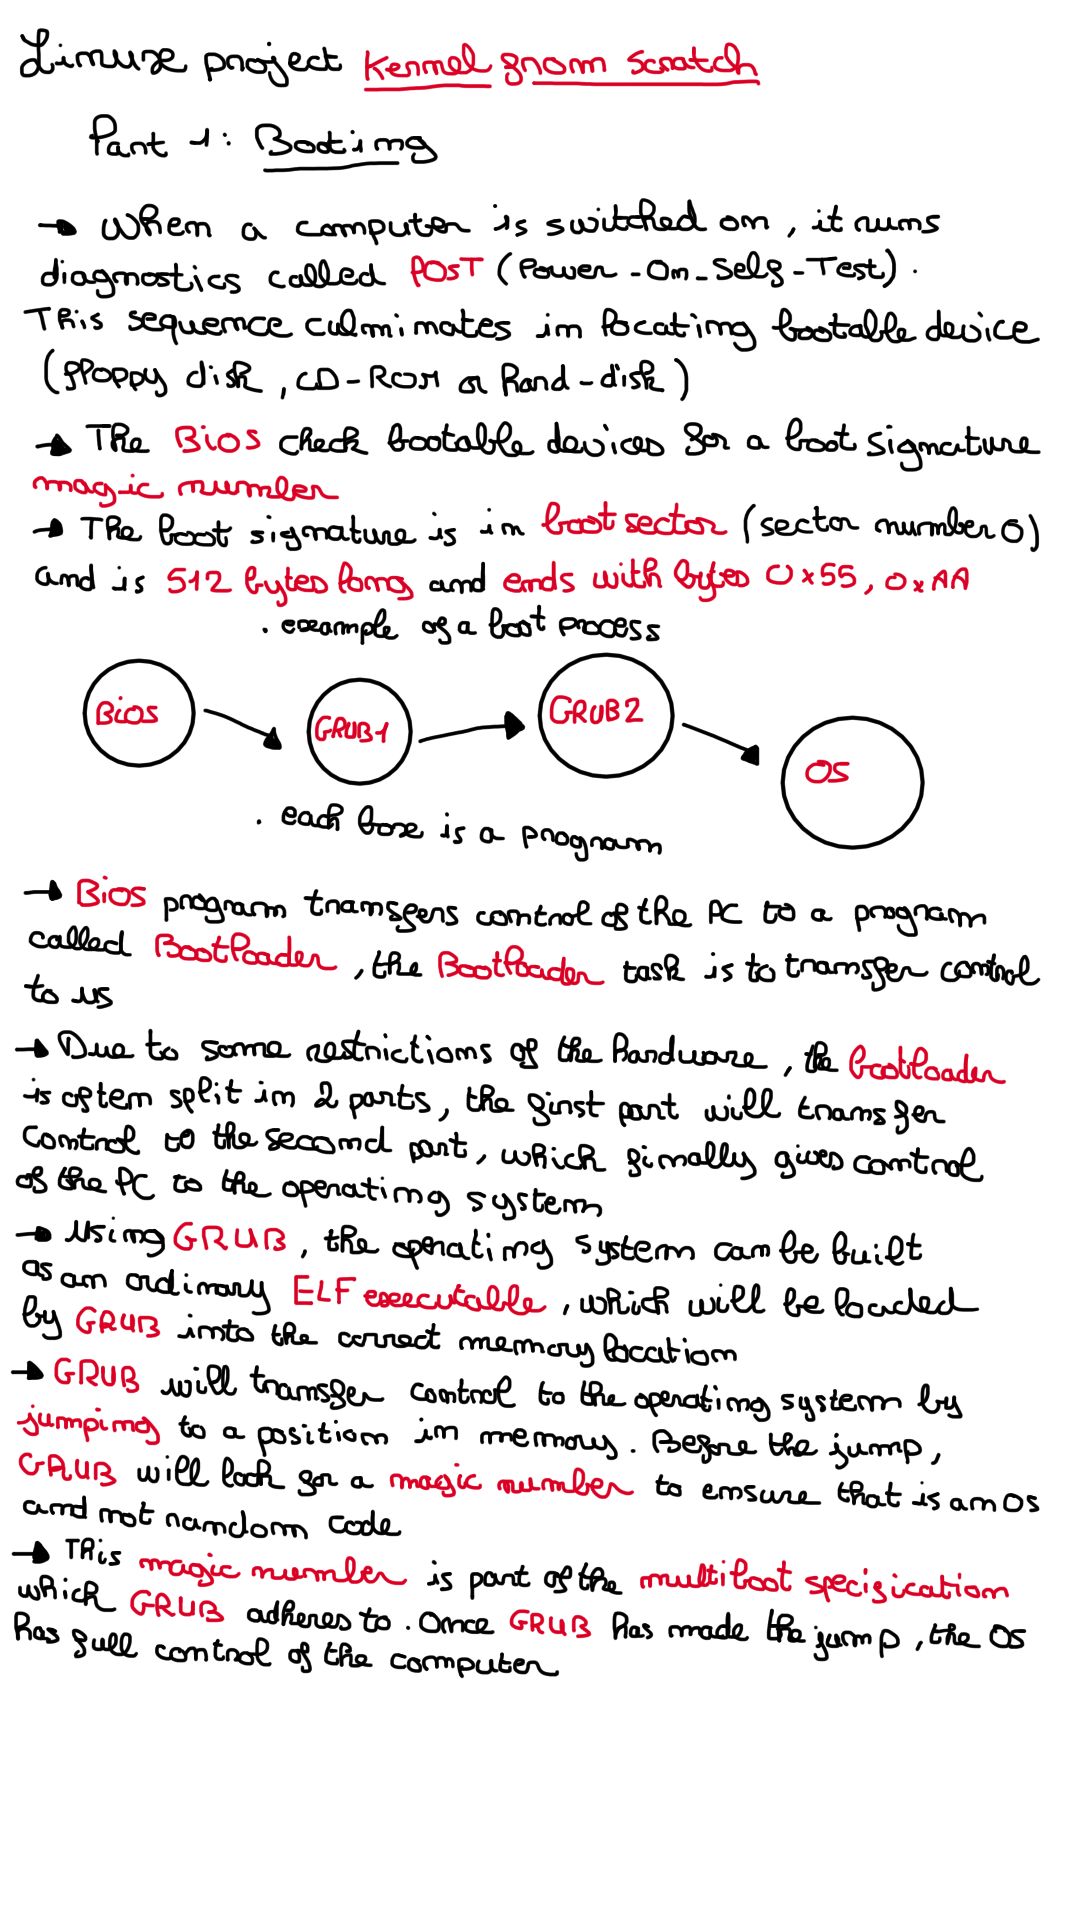 Linux project Kernel from scratch
Part 1: Booting
→ When a computer is switched on, it runs
diagnostics called POST (Power-On-Self-Test).
This sequence culminates in locating bootable device
(floppy disk, CD-ROM or hard-disk)
→ The Bios check bootable devices for a boot signature
magic number
→ The boot signature is in boot sector (sector number 0)
and is 512 bytes long and ends with bytes 0x55, 0xAA
. example of a boot process
Bios → GRUB1 → GRUB2 → OS
. each box is a program
→ Bios program transfers control of the PC to a program
called Bootloader, the Bootloader task is to transfer control
to us
→ Due to some restrictions of the hardware, the bootloader
is often split in 2 parts, the first part will transfer
control to the second part, which finally gives control
of the PC to the operating system
→ Using GRUB, the operating system can be built
as an ordinary ELF executable, which will be loaded
by GRUB into the correct memory location
→ GRUB will transfer control to the operating system by
jumping to a position in memory. Before the jump,
GRUB will look for a magic number to ensure that is an OS
and not random code
→ This magic number is part of the multiboot specification
which GRUB adheres to. Once GRUB has made the jump, the OS
has full control of the computer